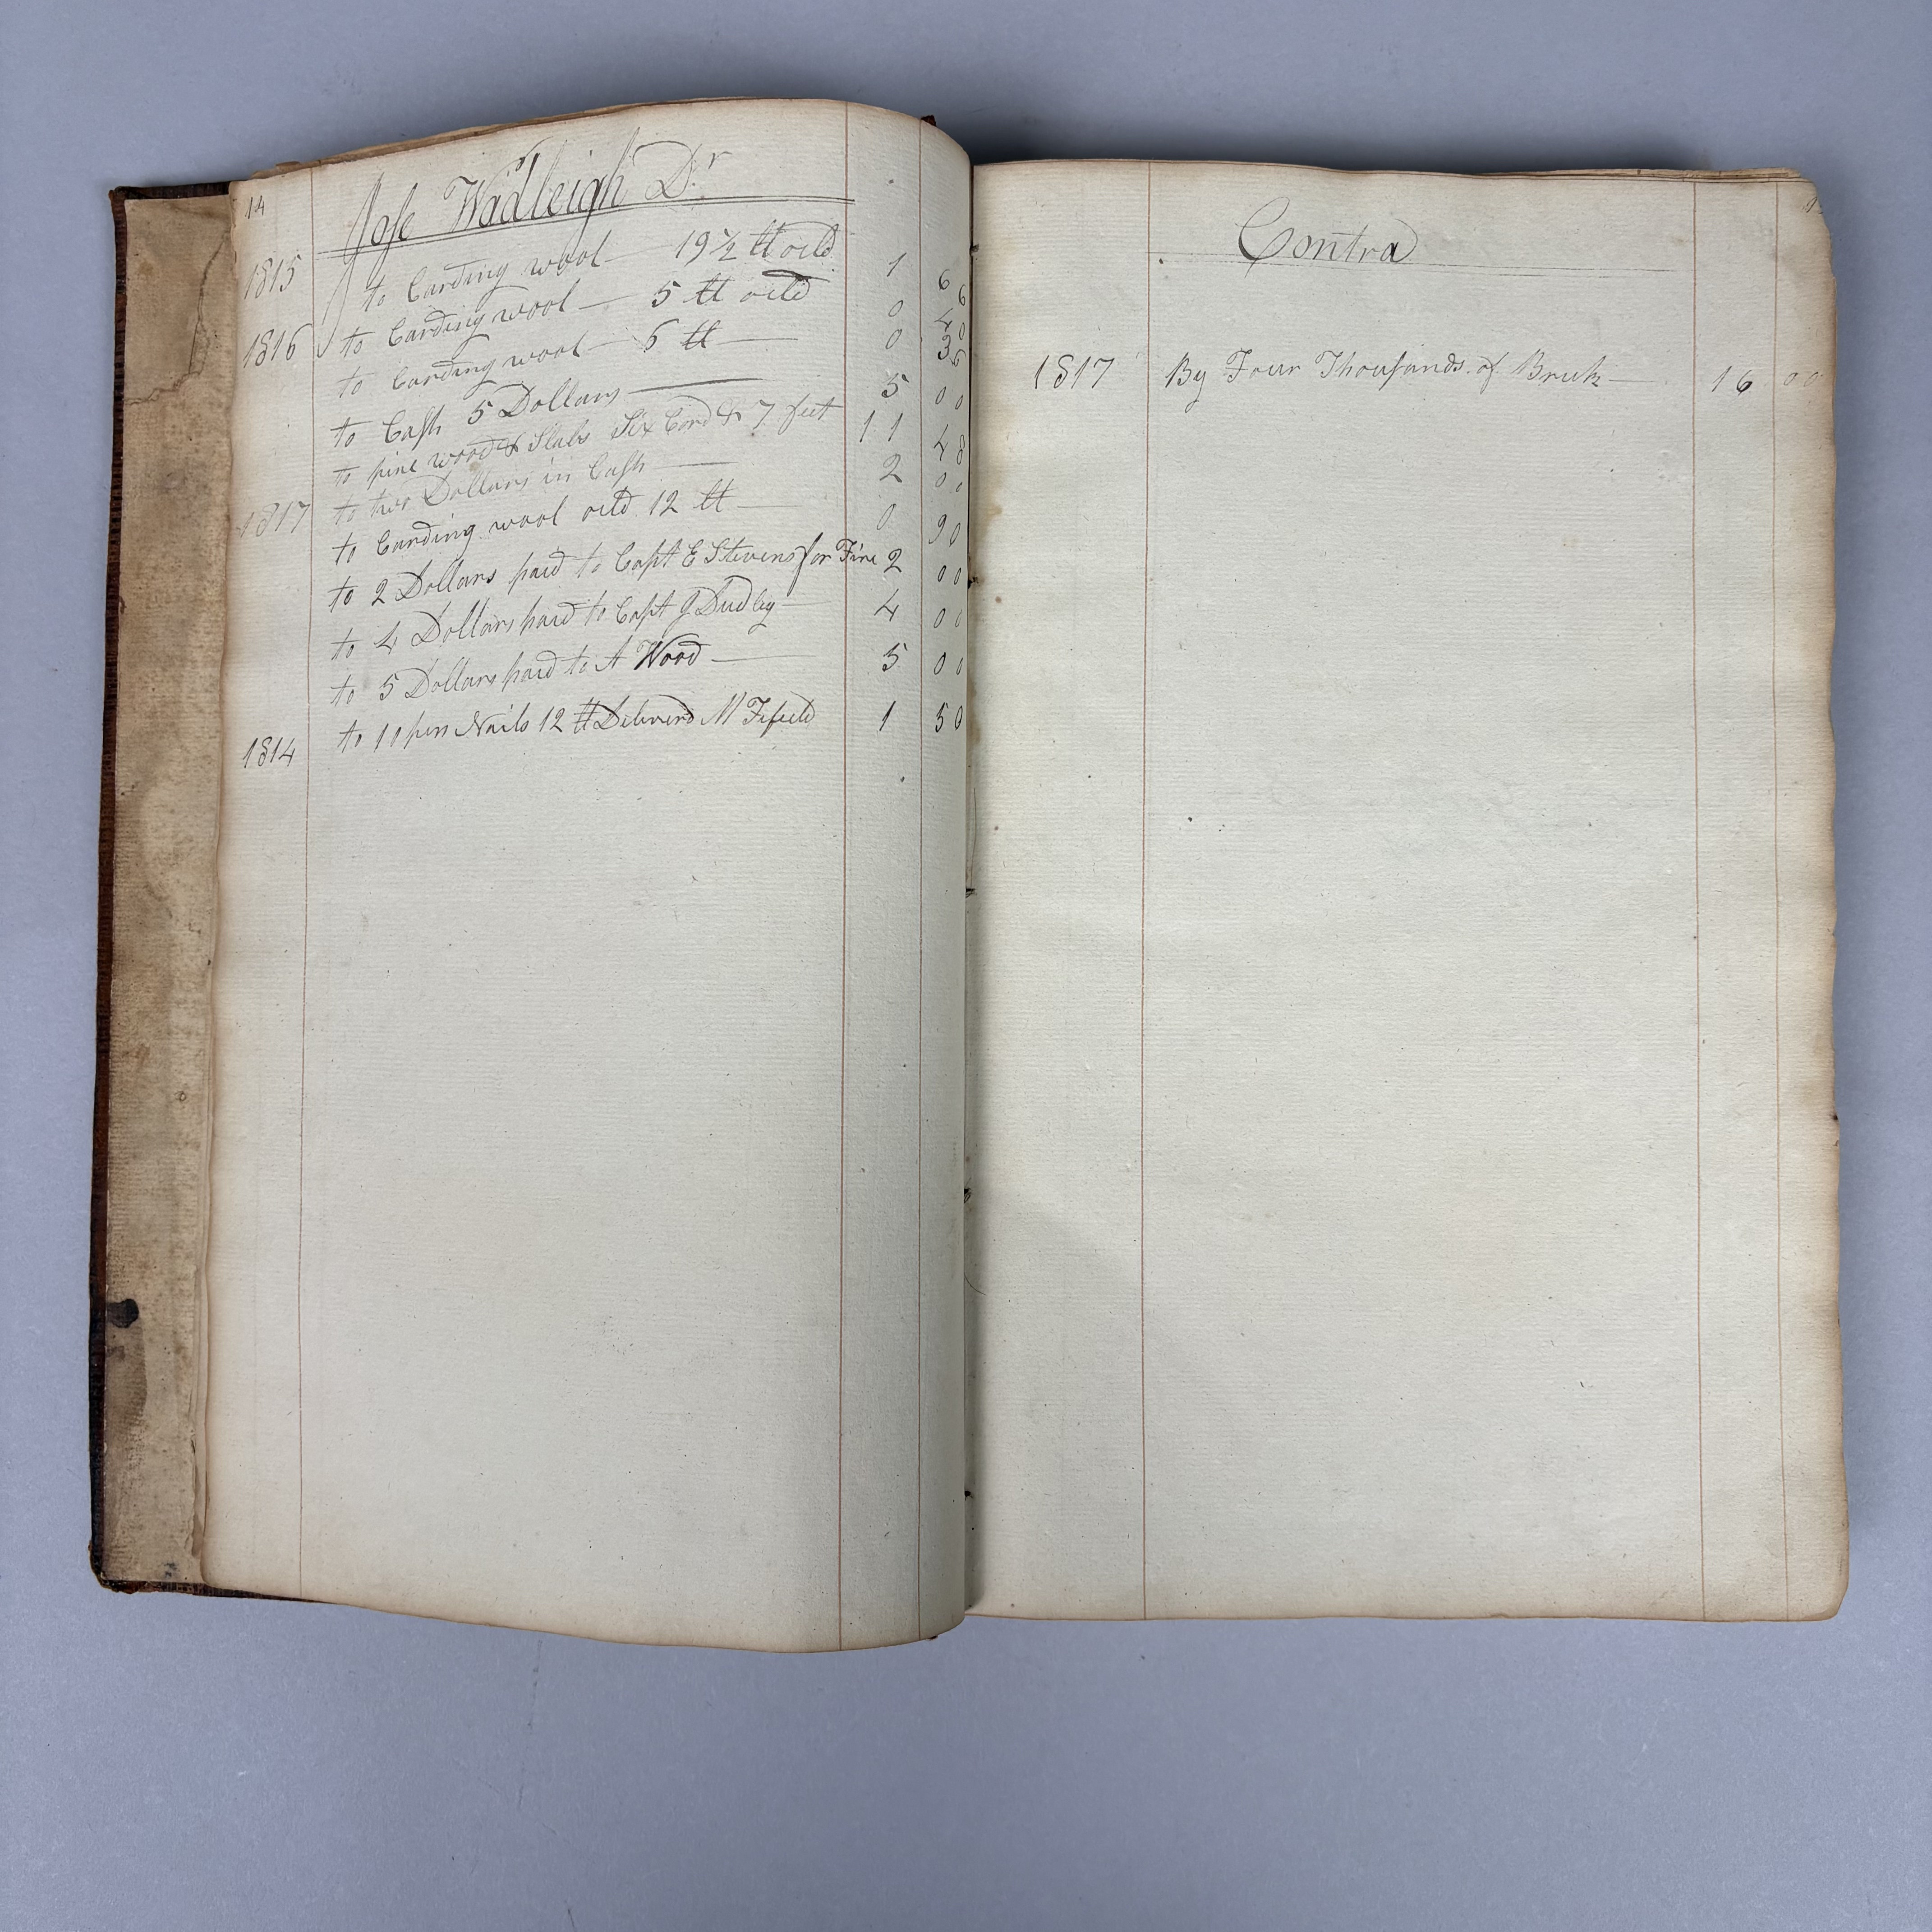 14
Jose Wadleigh Dr
1815 to Carding wool — 19 ½ tt oild 1 66
1816 to Carding wool — 5 tt oild 0 40
to Carding wool — 6 tt — 0 36
to Cash 5 Dollars — 5 00
to pine wood & Slabs Six Cord & 7 feet 11 48
to two Dollars in Cash — 2 00
1817 to Carding wool oild 12 tt — 0 90
to 2 Dollars paid to Capt E Stevens for Fine 2 00
to 4 Dollars paid to Capt J Dudley — 4 00
to 5 Dollars paid to A Wood — 5 00
1814 to 10 pen Nails 12 tt Deliverd M Fifield 1 50
Contra
1817 By Four Thousands of Brick — 16 00